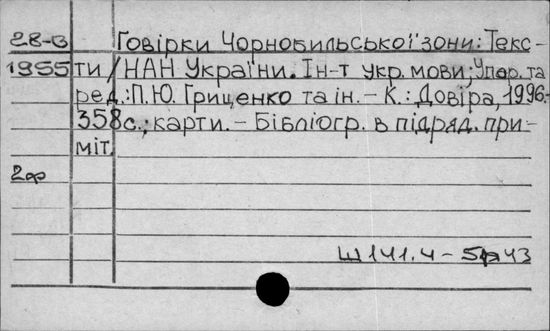 28-В Говірки Чорнобильської зони: Текс-
1955 ти / НАН України. Ін-т укр. мови; Упор. та
ред.: П.Ю. Гриценко та ін. – К.: Довіра, 1996.-
358с.; карти. – Бібліогр. в підряд. при-
міт.
2ф
Ш141.4 – 5я43